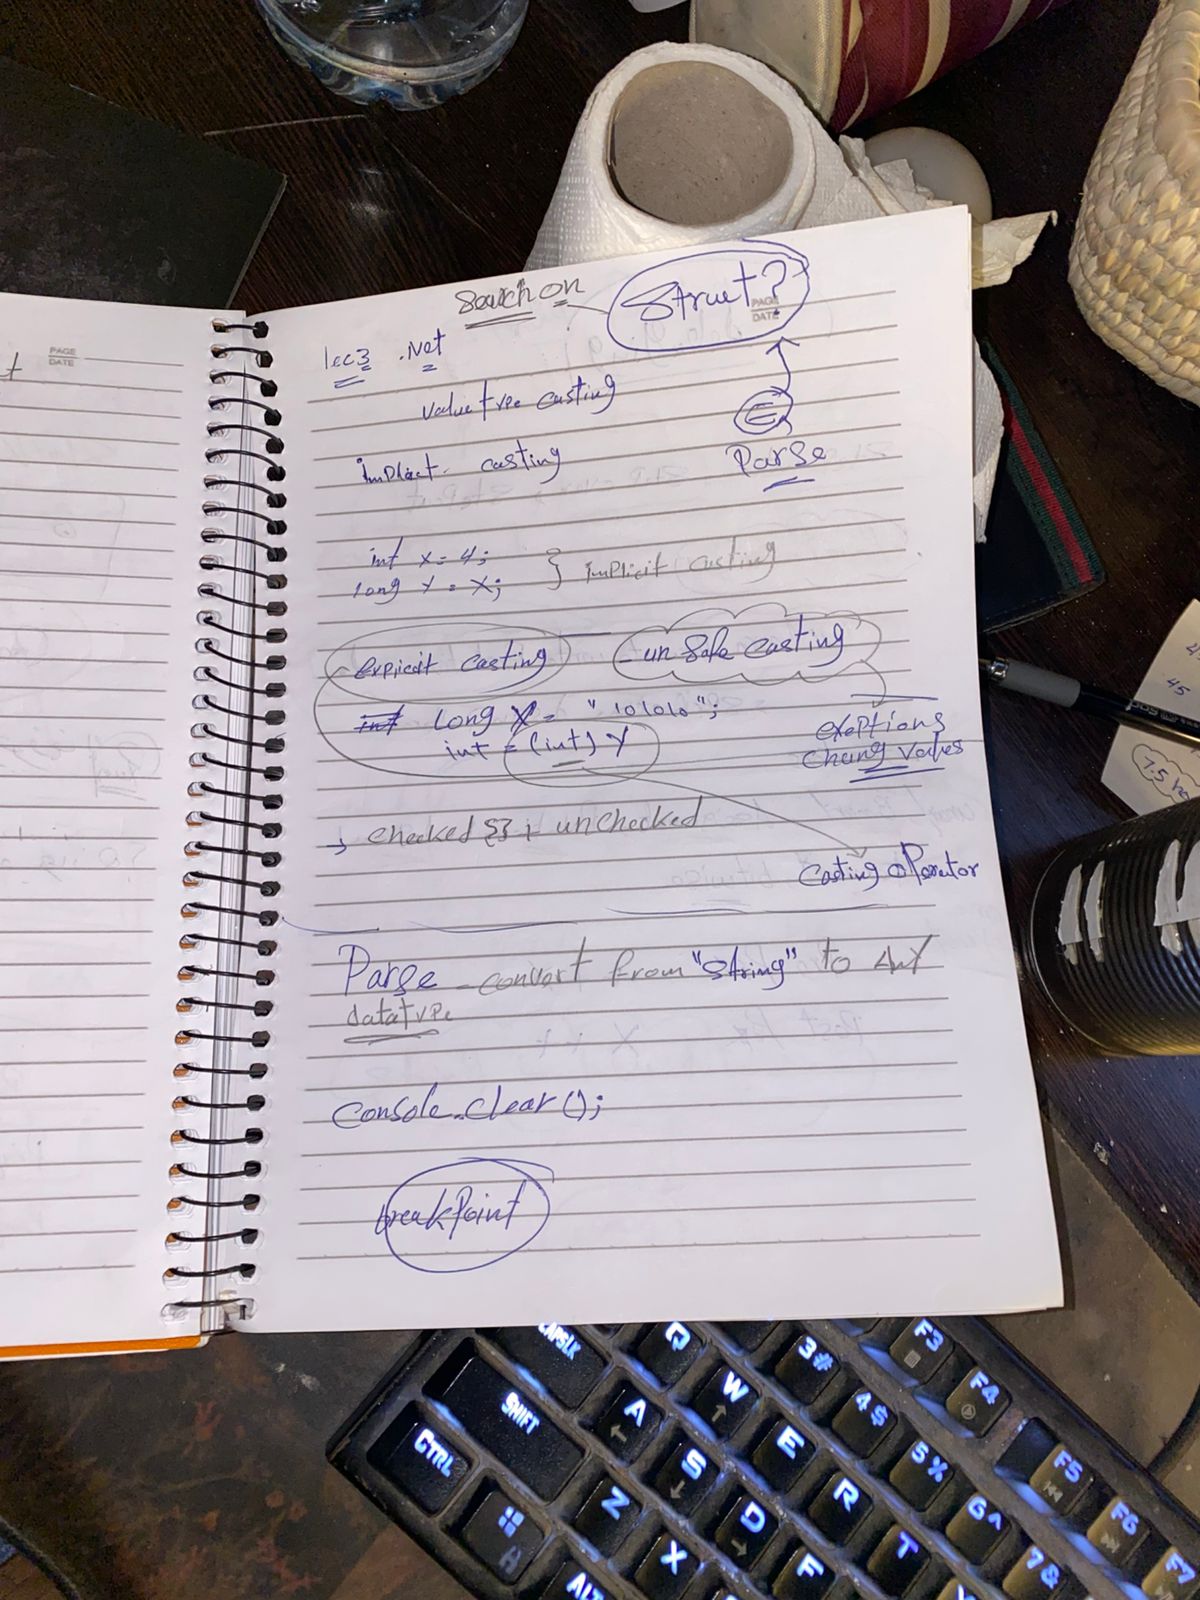 Search on Struct?
PAGE
DATE
PAGE
DATE
lec3 .Net
value type casting
implict casting
Parse
int x = 4;
long Y = X;
} implicit casting
Expicit casting
- un Safe casting
int long Y = "101010";
int = (int) Y
exeptions
chang values
→ checked {} ; unchecked
casting operator
Parse - convert from "string" to any
datatype
console.clear();
breakPoint
45
7.5
CAPSLK Q 3# F3
SHIFT A W 4$ F4
CTRL S E 5% F5
Z D R 6^ F6
X F T 7& F7
ALT